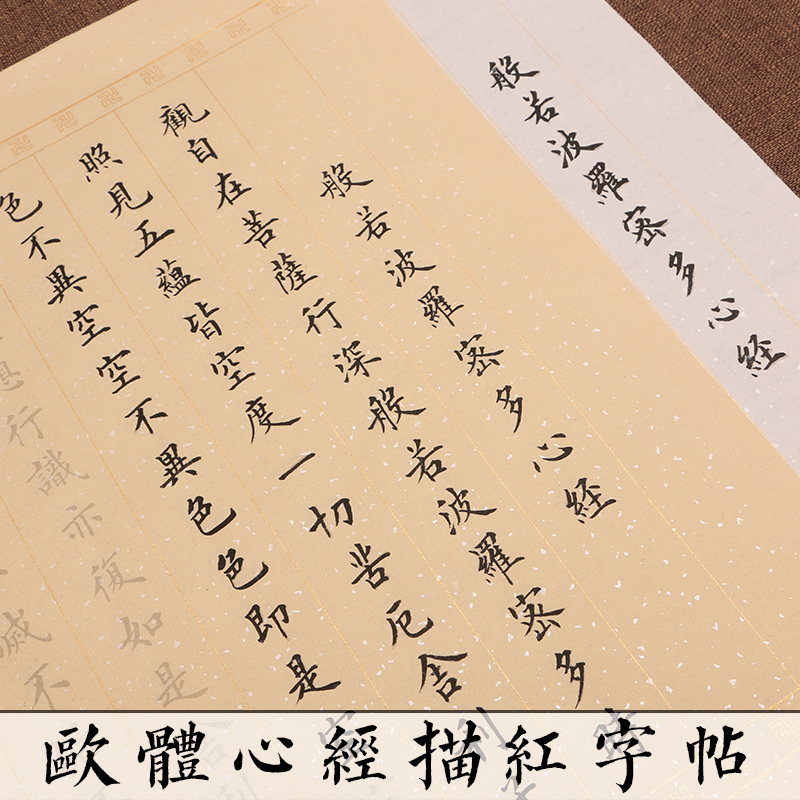 般若波羅密多心経
般若波羅密多心経
觀自在菩薩行深般若波羅密多
照見五蘊皆空度一切苦厄舍
色不異空空不異色色即是
想行識亦復如是
滅不
歐體心經描紅字帖